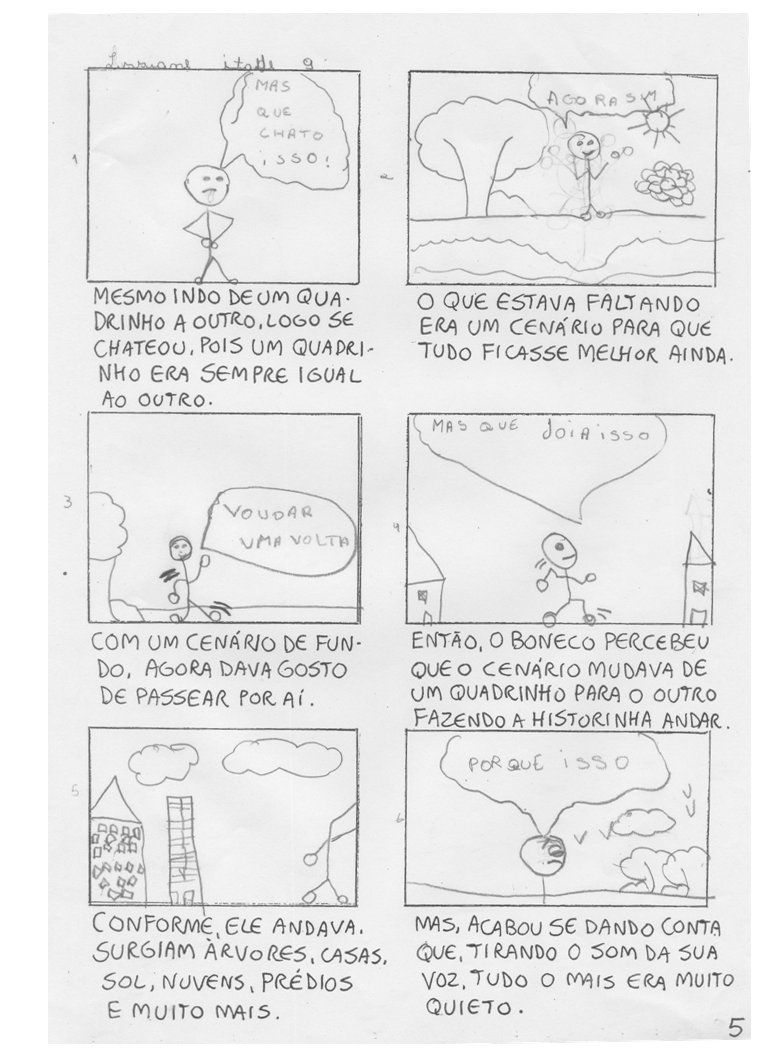 9
1
MAS
QUE
CHATO
ISSO!
MESMO INDO DE UM QUA-
DRINHO A OUTRO, LOGO SE
CHATEOU, POIS UM QUADRI-
NHO ERA SEMPRE IGUAL
AO OUTRO.
2
AGORA SIM
O QUE ESTAVA FALTANDO
ERA UM CENÁRIO PARA QUE
TUDO FICASSE MELHOR AINDA.
3
VOU DAR
UMA VOLTA
COM UM CENÁRIO DE FUN-
DO, AGORA DAVA GOSTO
DE PASSEAR POR AÍ.
4
MAS QUE JOIA ISSO
ENTÃO, O BONECO PERCEBEU
QUE O CENÁRIO MUDAVA DE
UM QUADRINHO PARA O OUTRO
FAZENDO A HISTORINHA ANDAR.
5
CONFORME, ELE ANDAVA,
SURGIAM ÀRVORES, CASAS,
SOL, NUVENS, PRÉDIOS
E MUITO MAIS.
6
POR QUE ISSO
MAS, ACABOU SE DANDO CONTA
QUE, TIRANDO O SOM DA SUA
VOZ, TUDO O MAIS ERA MUITO
QUIETO.
5